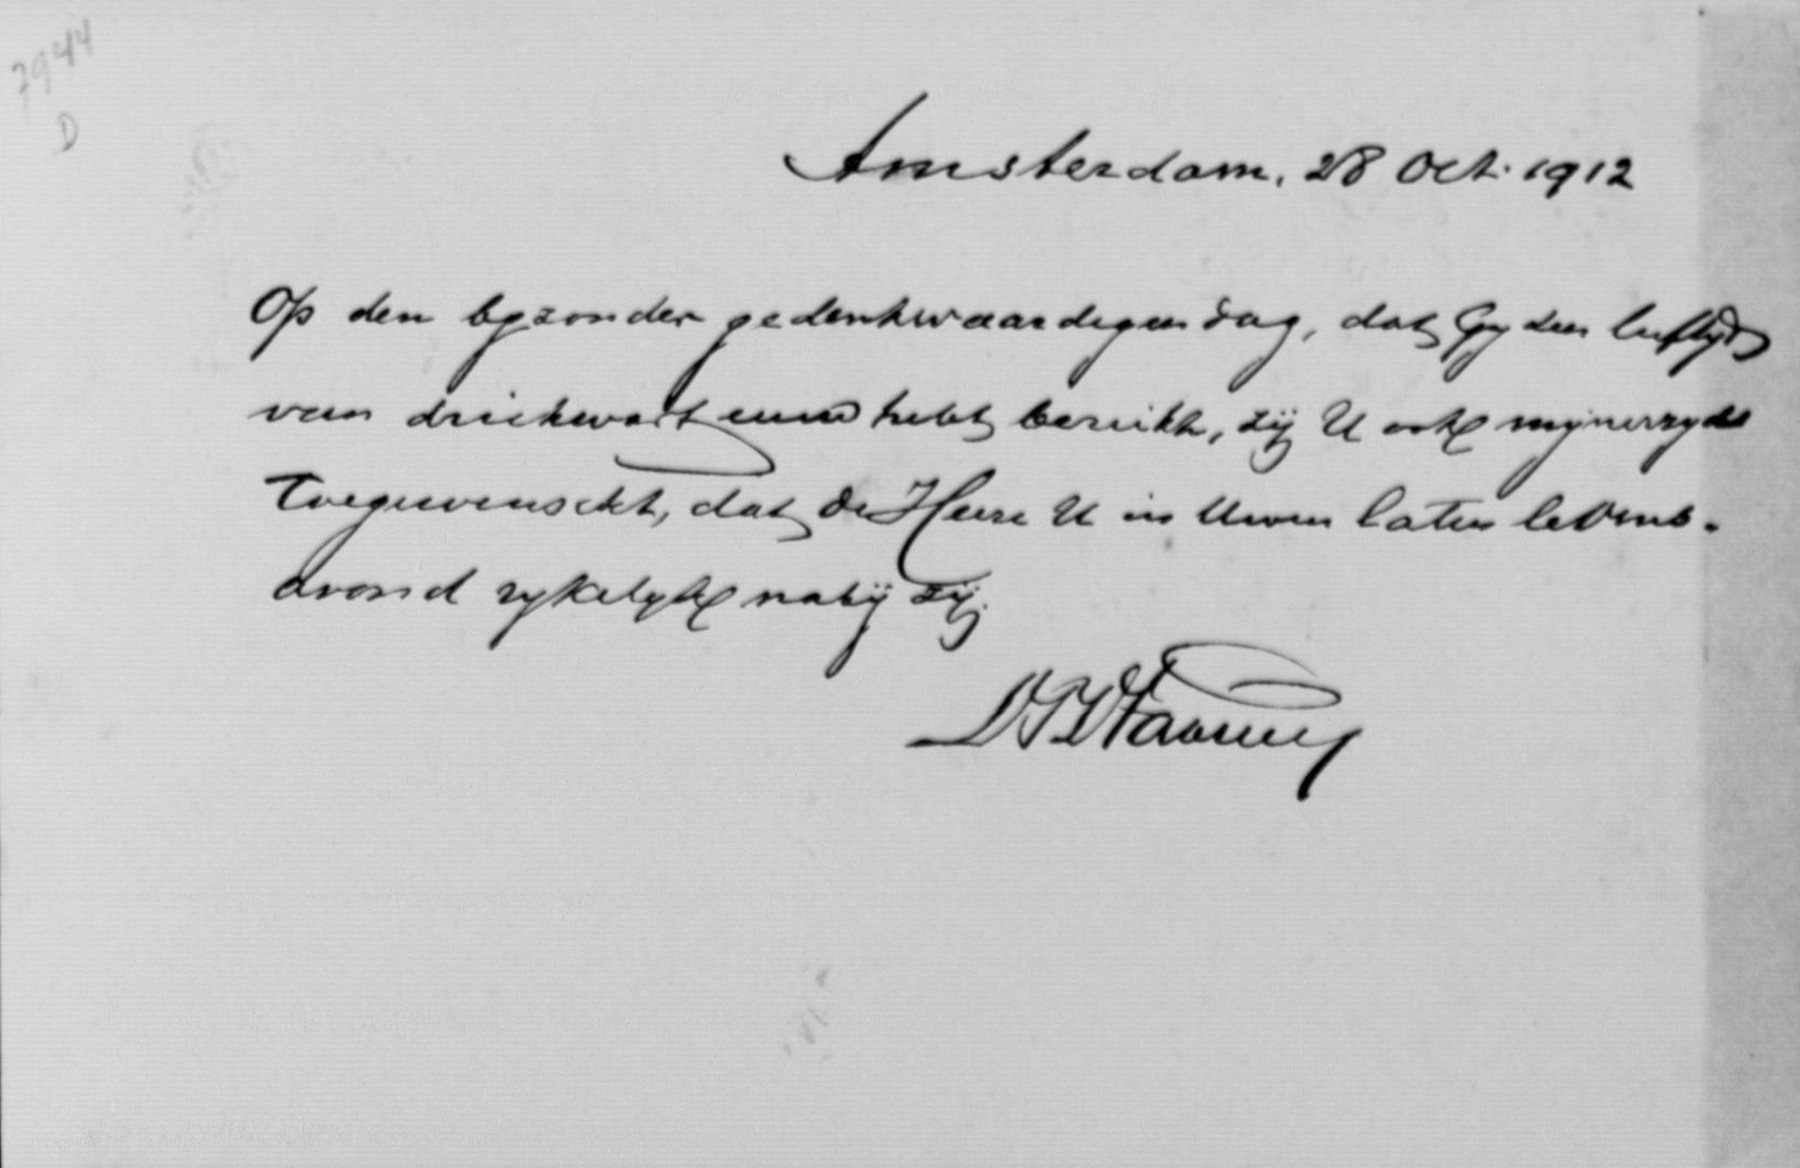 7944
D
Amsterdam, 28 Oct. 1912
Op den byzonder gedenkwaardigen dag, dat Gy den leeftyd
van driekwart eeuw hebt bereikt, zij U ook mynerzyds
toegewenscht, dat de Heere U in Uwen laten levens-
avond rykelyk nabij zij.